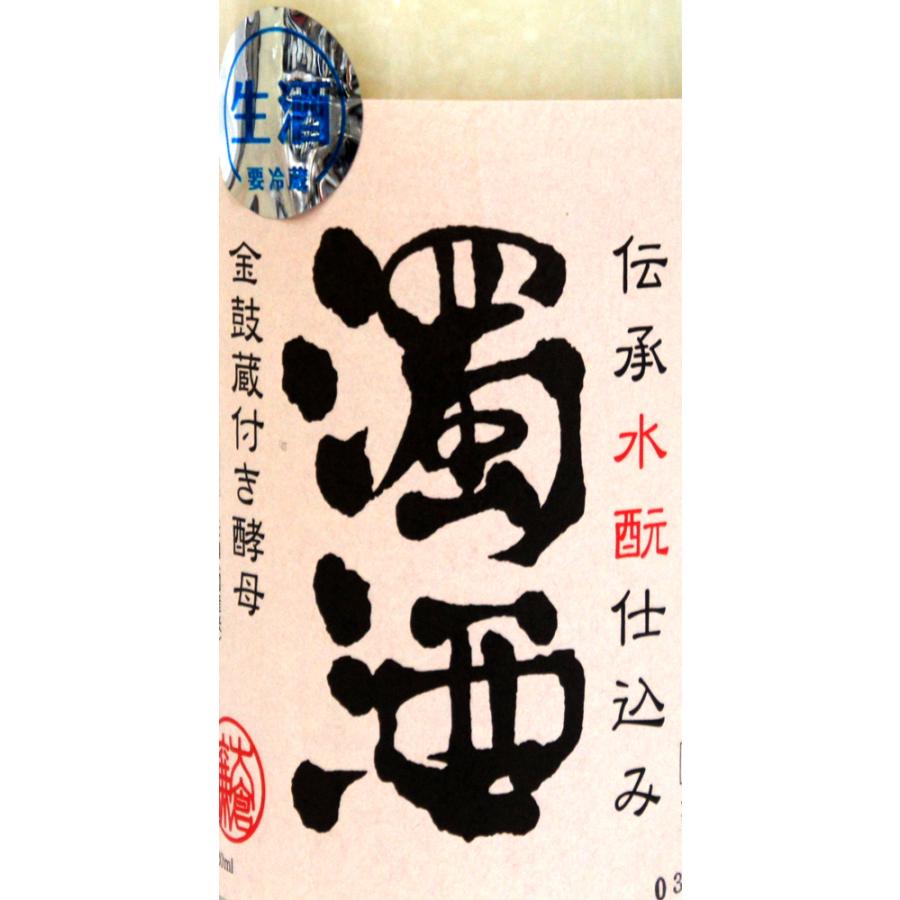 生酒
要冷蔵
伝承水酛仕込み
濁酒
金鼓蔵付き酵母
大倉
0ml
03